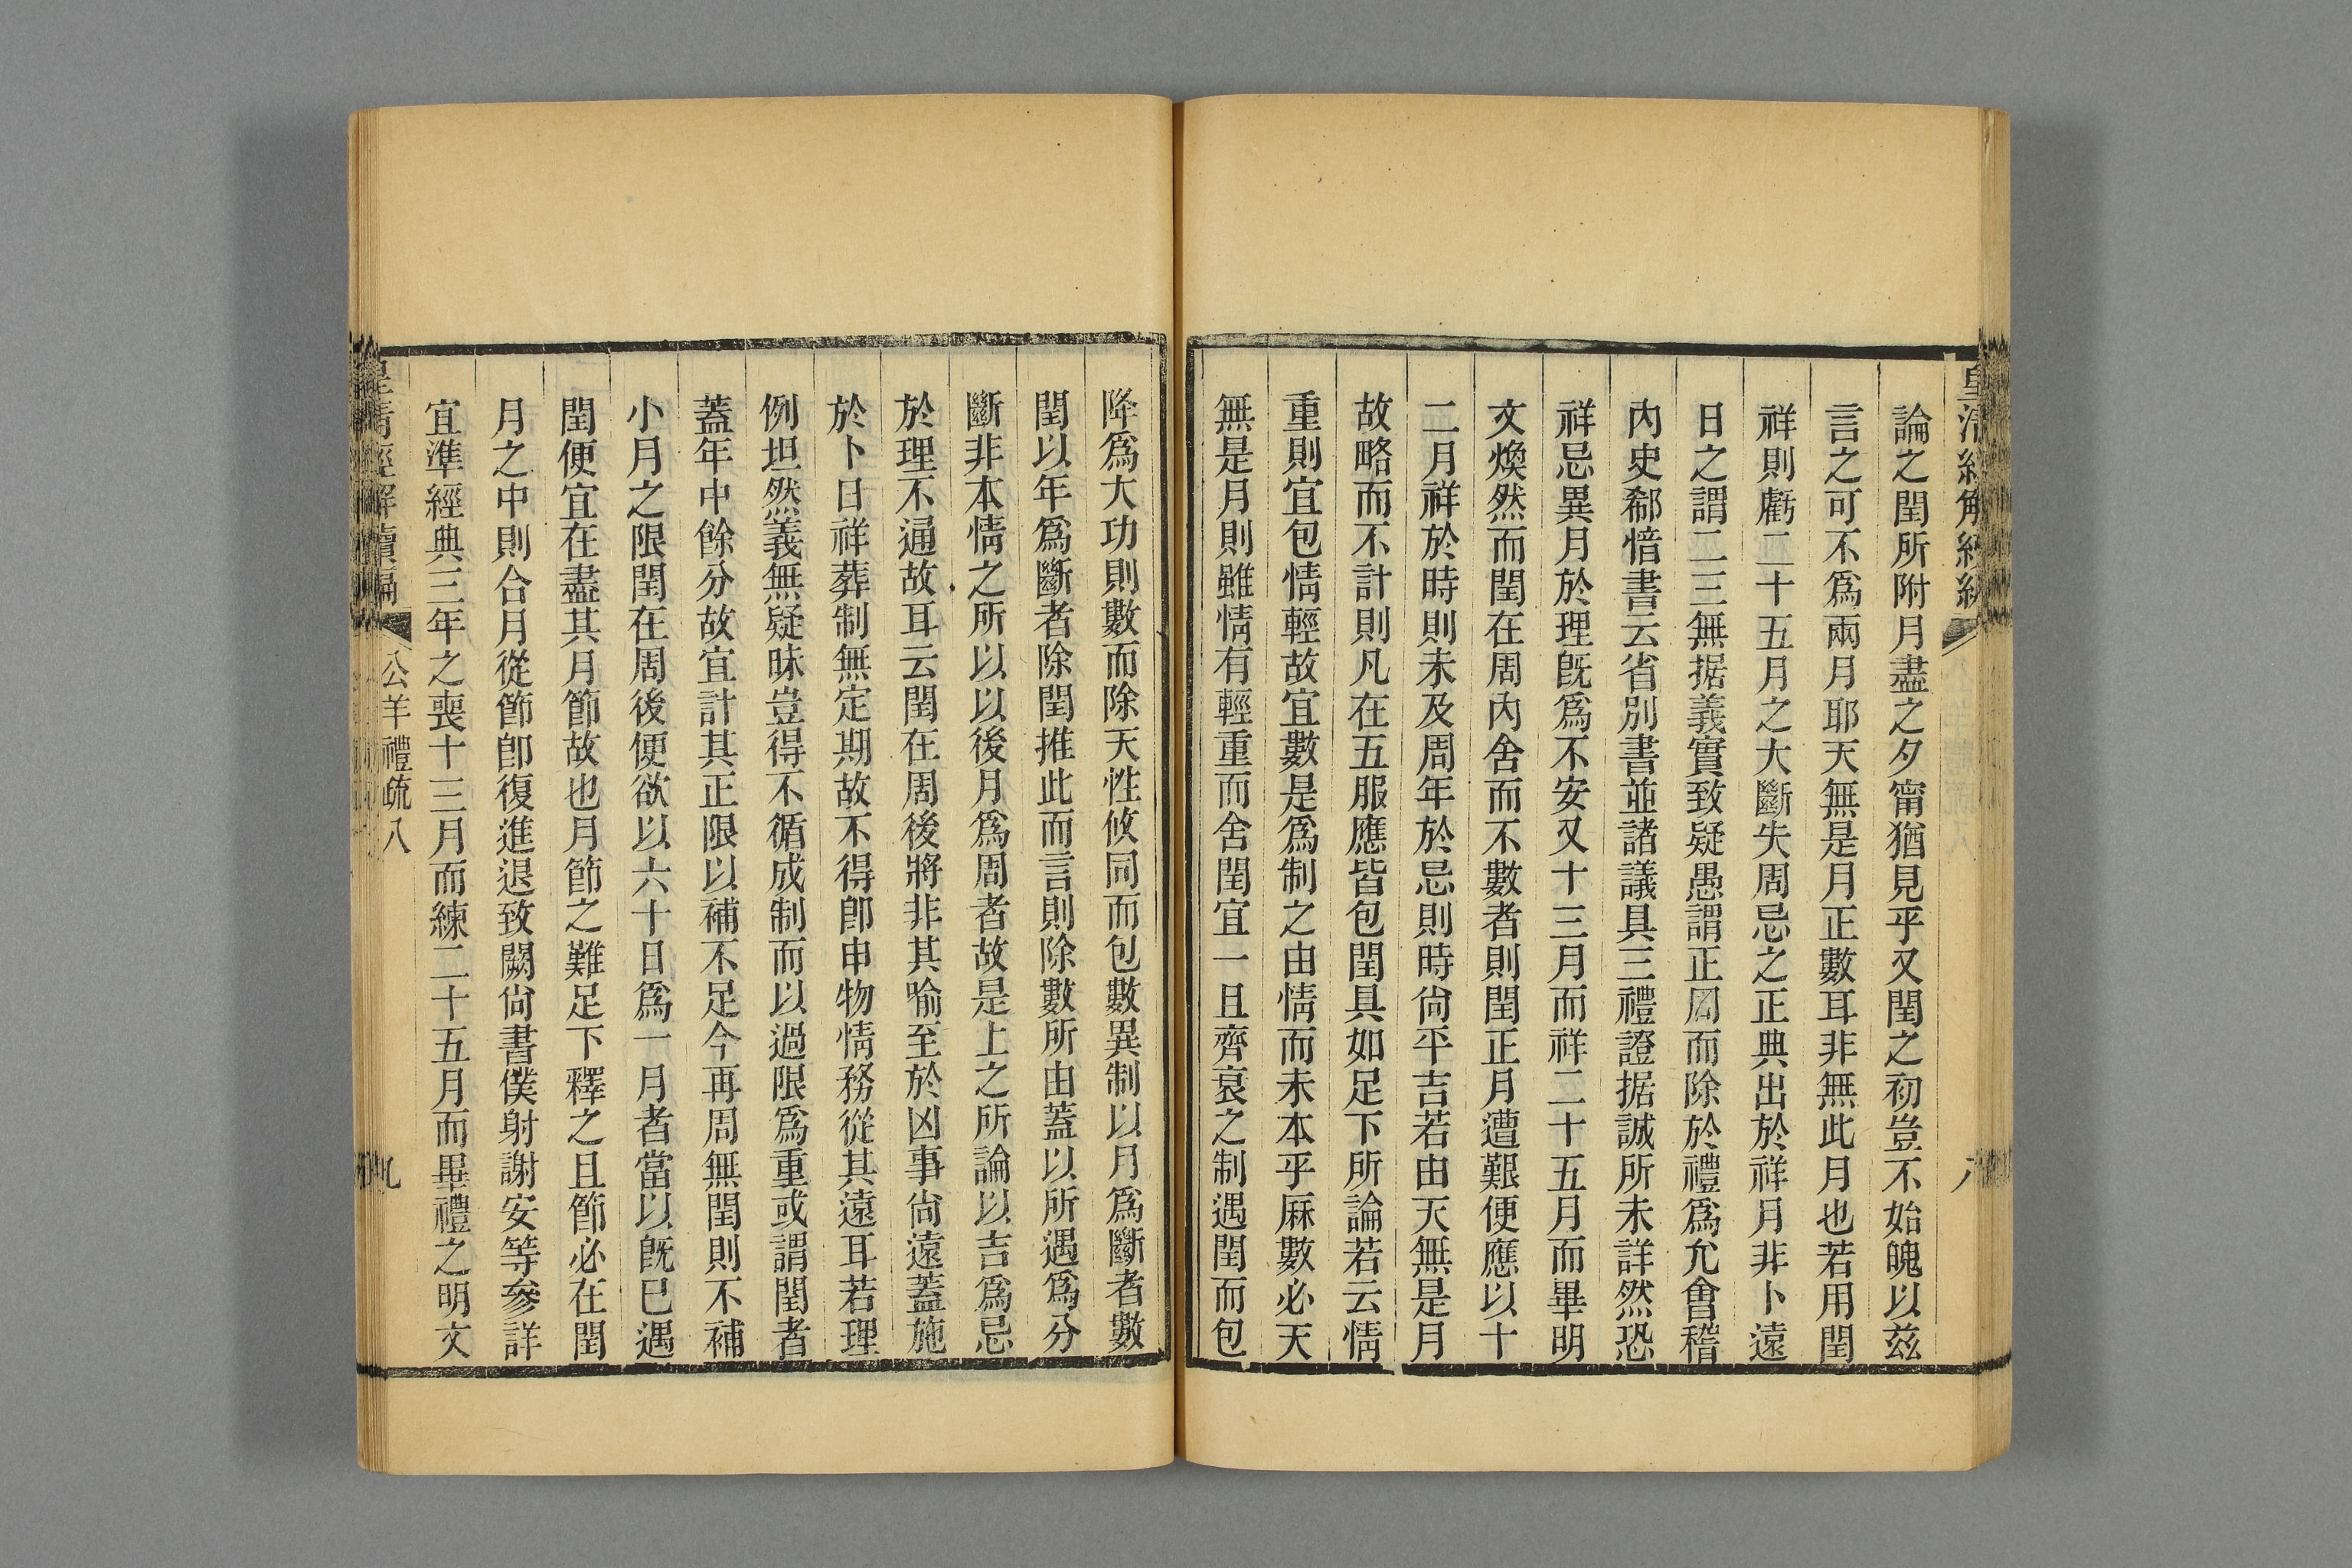 論之閏所附月盡之夕甯猶見乎又閏之初豈不始魄以茲
言之可不爲兩月耶天無是月正數耳非無此月也若用閏
祥則虧二十五月之大斷失周忌之正典出於祥月非卜遠
日之謂二三無据義實致疑愚謂正周而除於禮爲允會稽
內史郗愔書云省別書並諸議具三禮證据誠所未詳然恐
祥忌異月於理旣爲不安又十三月而祥二十五月而畢明
文煥然而閏在周內舍而不數者則閏正月遭艱便應以十
二月祥於時則未及周年於忌則時尙平吉若由天無是月
故略而不計則凡在五服應皆包閏具如足下所論若云情
重則宜包情輕故宜數是爲制之由情而未本乎厤數必天
無是月則雖情有輕重而舍閏宜一且齊衰之制遇閏而包
降爲大功則數而除天性攸同而包數異制以月爲斷者數
閏以年爲斷者除閏推此而言則除數所由蓋以所遇爲分
斷非本情之所以以後月爲周者故是上之所論以吉爲忌
於理不通故耳云閏在周後將非其喻至於凶事尙遠蓋施
於卜日祥葬制無定期故不得卽申物情務從其遠耳若理
例坦然義無疑昧豈得不循成制而以過限爲重或謂閏者
蓋年中餘分故宜計其正限以補不足今再周無閏則不補
小月之限閏在周後便欲以六十日爲一月者當以旣巳遇
閏便宜在盡其月節故也月節之難足下釋之且節必在閏
月之中則合月從節卽復進退致闕尙書僕射謝安等參詳
宜準經典三年之喪十三月而練二十五月而畢禮之明文
皇清經解續編
公羊禮疏八
九